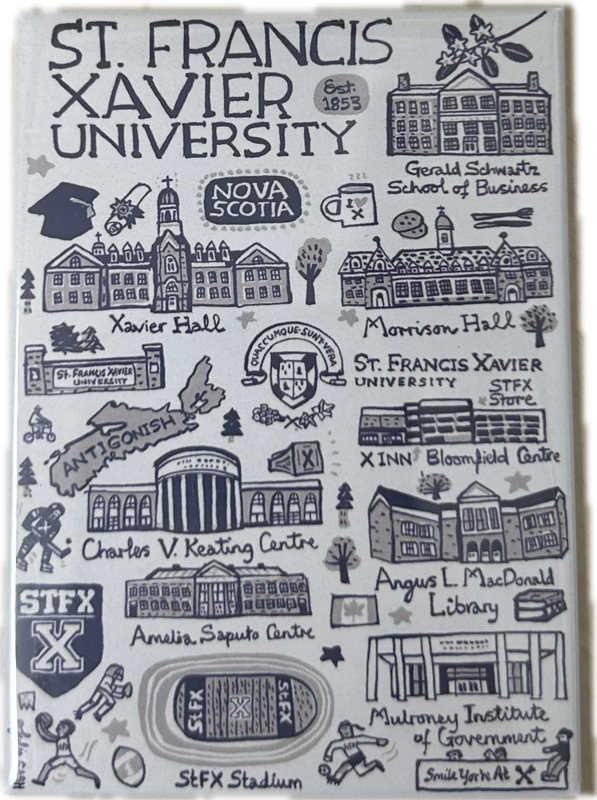 ST. FRANCIS
XAVIER
UNIVERSITY
Est.
1853
Gerald Schwartz
School of Business
NOVA
SCOTIA
zzz
I ♥ X
Xavier Hall
Morrison Hall
ST. FRANCIS XAVIER
UNIVERSITY
QUAECUMQUE·SUNT·VERA
ST. FRANCIS XAVIER
UNIVERSITY
STFX
Store
ANTIGONISH
X
X INN
Bloomfield Centre
Charles V. Keating Centre
Angus L. MacDonald
Library
STFX
X
Amelia Saputo Centre
StFX
X
StFX
Mulroney Institute
of Government
StFX Stadium
Smile You're At X